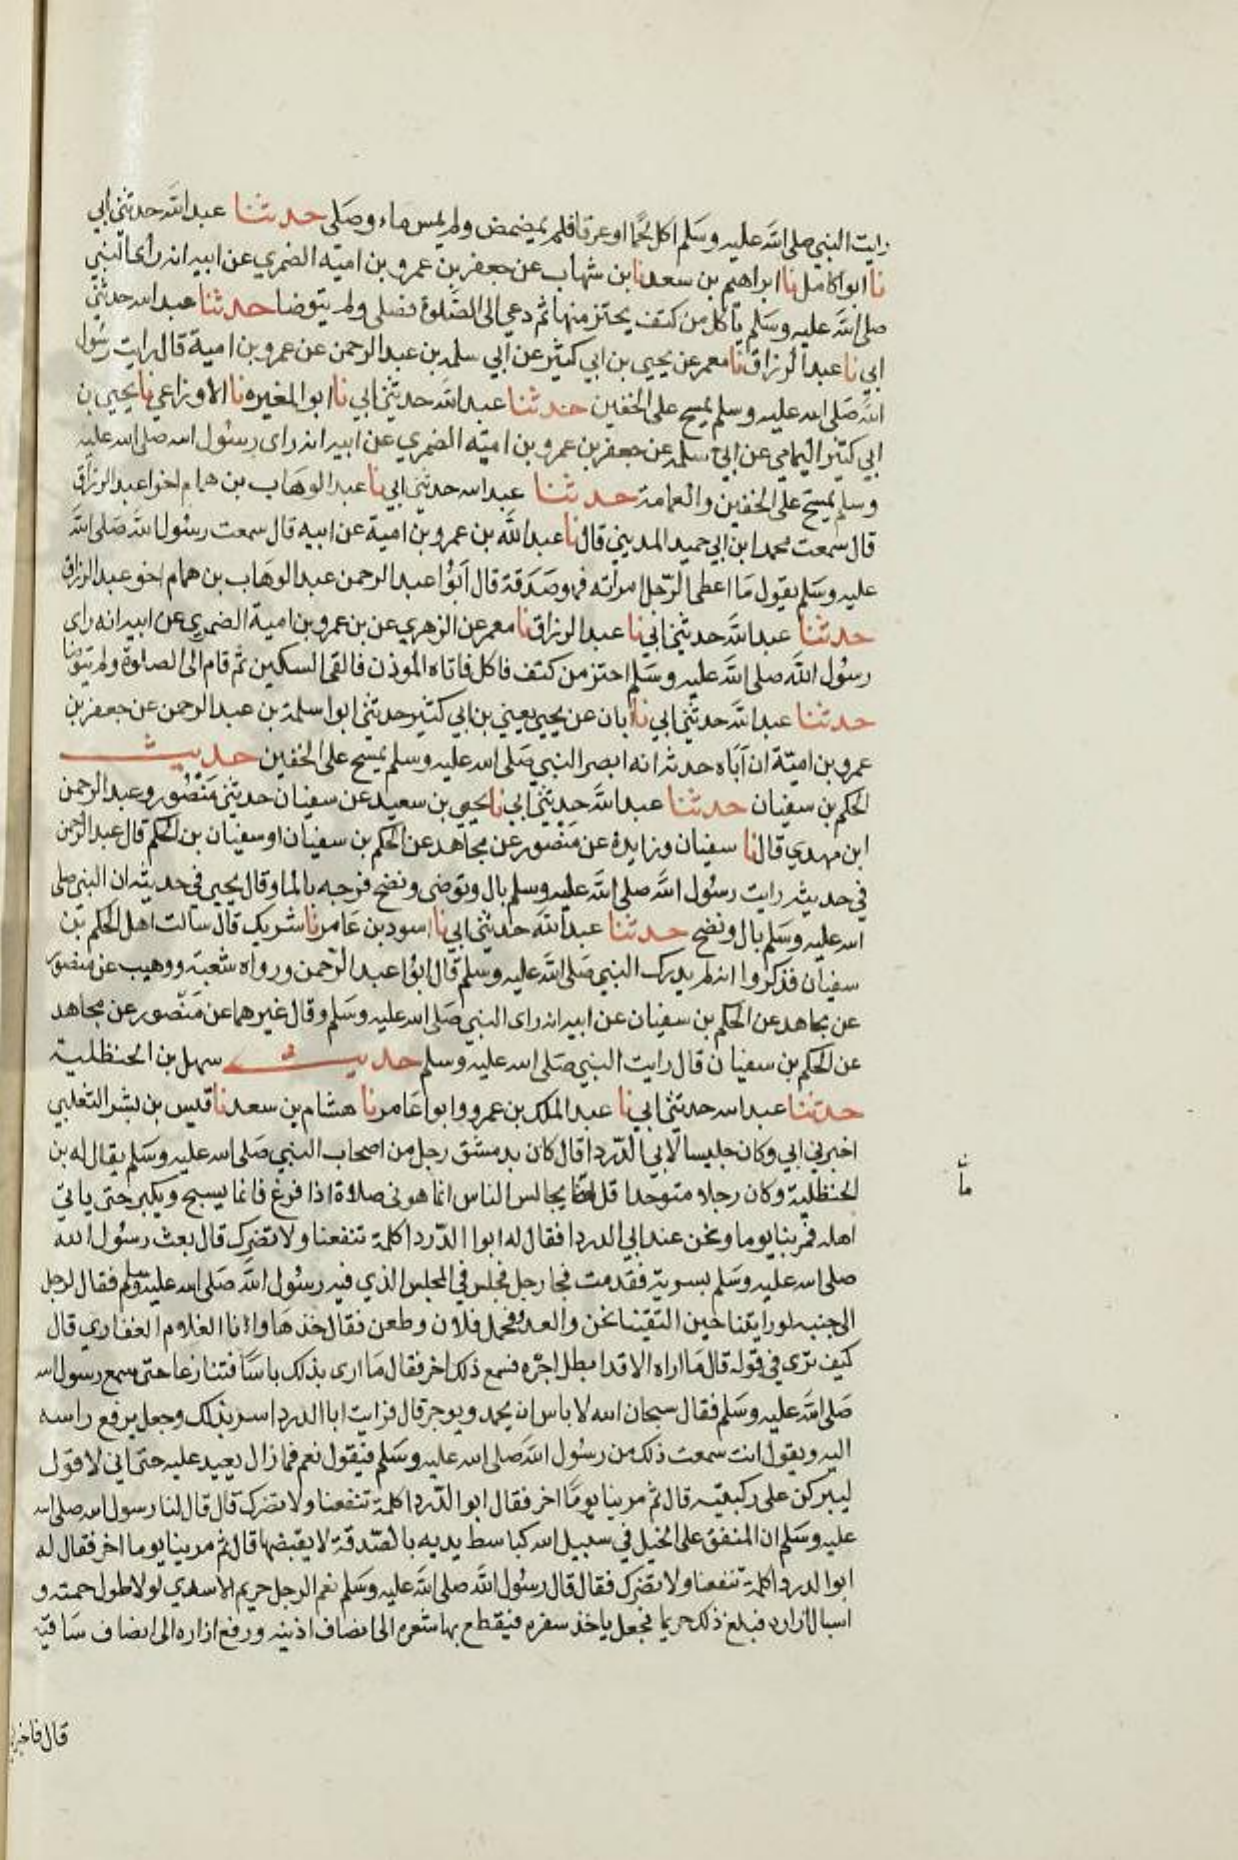 رايت النبي صلى الله عليه وسلم اكل لحما او عرقا فلم يمضمض ولم يمس ماء وصلى حدثنا عبد الله حدثني ابي
نا ابو اكامل نا ابراهيم بن سعد نا ابن شهاب عن جعفر بن عمرو بن امية الضمري عن ابيه انه راى النبي
صلى الله عليه وسلم ياكل من كتف يحتز منها ثم دعي الى الصلوة فصلى ولم يتوضا حدثنا عبد الله حدثني
ابي نا عبد الرزاق نا معمر عن يحيى بن ابي كثير عن ابي سلمة بن عبد الرحمن عن عمرو بن امية قال رايت رسول
الله صلى الله عليه وسلم يمسح على الخفين حدثنا عبد الله حدثني ابي نا ابو المغيره نا الاوزاعي نا يحيى بن
ابي كثير اليمامي عن ابي سلمة عن جعفر بن عمرو بن امية الضمري عن ابيه انه راى رسول الله صلى الله عليه
وسلم يمسح على الخفين والعمامة حدثنا عبد الله حدثني ابي نا عبد الوهاب بن همام اخو عبد الرزاق
قال سمعت محمد ابن ابي حميد المديني قال نا عبد الله بن عمرو بن امية عن ابيه قال سمعت رسول الله صلى الله
عليه وسلم يقول ما اعطى الرجل امراته فهو صدقة قال ابوا عبد الرحمن عبد الوهاب بن همام اخو عبد الرزاق
حدثنا عبد الله حدثني ابي نا عبد الرزاق نا معمر عن الزهري عن بن عمرو بن امية الضمري عن ابيه انه راى
رسول الله صلى الله عليه وسلم احتز من كتف فاكل فاتاه الموذن فالقى السكين ثم قام الى الصلوة ولم يتوضا
حدثنا عبد الله حدثني ابي نا ابان عن يحيى يعني بن ابي كثير حدثني ابوا سلمة بن عبد الرحمن عن جعفر بن
عمرو بن امية ان اباه حدثه انه ابصر النبي صلى الله عليه وسلم يمسح على الخفين حديث
الحكم بن سفيان حدثنا عبد الله حدثني ابي نا يحيى بن سعيد عن سفيان حدثني منصور وعبد الرحمن
ابن مهدي قال نا سفيان وزايدة عن منصور عن مجاهد عن الحكم بن سفيان او سفيان بن الحكم قال عبد الرحمن
في حديثه رايت رسول الله صلى الله عليه وسلم بال وتوضى ونضح فرجه بالما وقال يحيى في حديثه ان النبي صلى
الله عليه وسلم بال ونضح حدثنا عبد الله حدثني ابي نا اسود بن عامر نا شريك قال سالت اهل الحكم بن
سفيان فذكروا انه لم يدرك النبي صلى الله عليه وسلم قال ابوا عبد الرحمن ورواه شعبة ووهيب عن منصور
عن مجاهد عن الحكم بن سفيان عن ابيه انه راى النبي صلى الله عليه وسلم وقال غيرهما عن منصور عن مجاهد
عن الحكم بن سفيان قال رايت النبي صلى الله عليه وسلم حديث سهل بن الحنظلية
حدثنا عبد الله حدثني ابي نا عبد الملك بن عمرو وابوا عامر نا هشام بن سعد نا قيس بن بشر التغلبي
اخبرني ابي وكان جليسا لابي الدردا قال كان بدمشق رجل من اصحاب النبي صلى الله عليه وسلم يقال له بن
الحنظلية وكان رجلا متوحدا قل ما يجالس الناس انما هو في صلاة اذا فرغ فانما يسبح ويكبر حتى ياتي
اهله فمر بنا يوما ونحن عند ابي الدردا فقال له ابوا الدردا كلمة تنفعنا ولا تضرك قال بعث رسول الله
صلى الله عليه وسلم بسرية فقدمت فجا رجل فجلس في المجلس الذي فيه رسول الله صلى الله عليه وسلم فقال لرجل
الى جنبه لو رايتنا حين التقينا نحن والعدو فحمل فلان وطعن فقال خذها وانا الغلام الغفاري قال
كيف ترى في قوله قال ما اراه الا قد ابطل اجره فسمع ذلك اخر فقال ما ارى بذلك باسا فتنازعا حتى سمع رسول الله
صلى الله عليه وسلم فقال سبحان الله لا باس ان يحمد ويوجر قال فرايت ابا الدردا سر بذلك وجعل يرفع راسه
اليه ويقول انت سمعت ذلك من رسول الله صلى الله عليه وسلم فيقول نعم فما زال يعيد عليه حتى اني لاقول
ليبركن على ركبتيه قال ثم مر بنا يوما اخر فقال ابوا الدردا كلمة تنفعنا ولا تضرك قال قال لنا رسول الله صلى الله
عليه وسلم ان المنفق على الخيل في سبيل الله كباسط يديه بالصدقة لا يقبضها قال ثم مر بنا يوما اخر فقال له
ابوا الدردا كلمة تنفعنا ولا تضرك فقال قال رسول الله صلى الله عليه وسلم نعم الرجل خريم الاسدي لولا طول جمته و
اسبال ازاره فبلغ ذلك خريما فجعل ياخذ سفره فيقطع بها شعره الى انصاف اذنيه ورفع ازاره الى انصاف ساقيه
قال فاخبرني